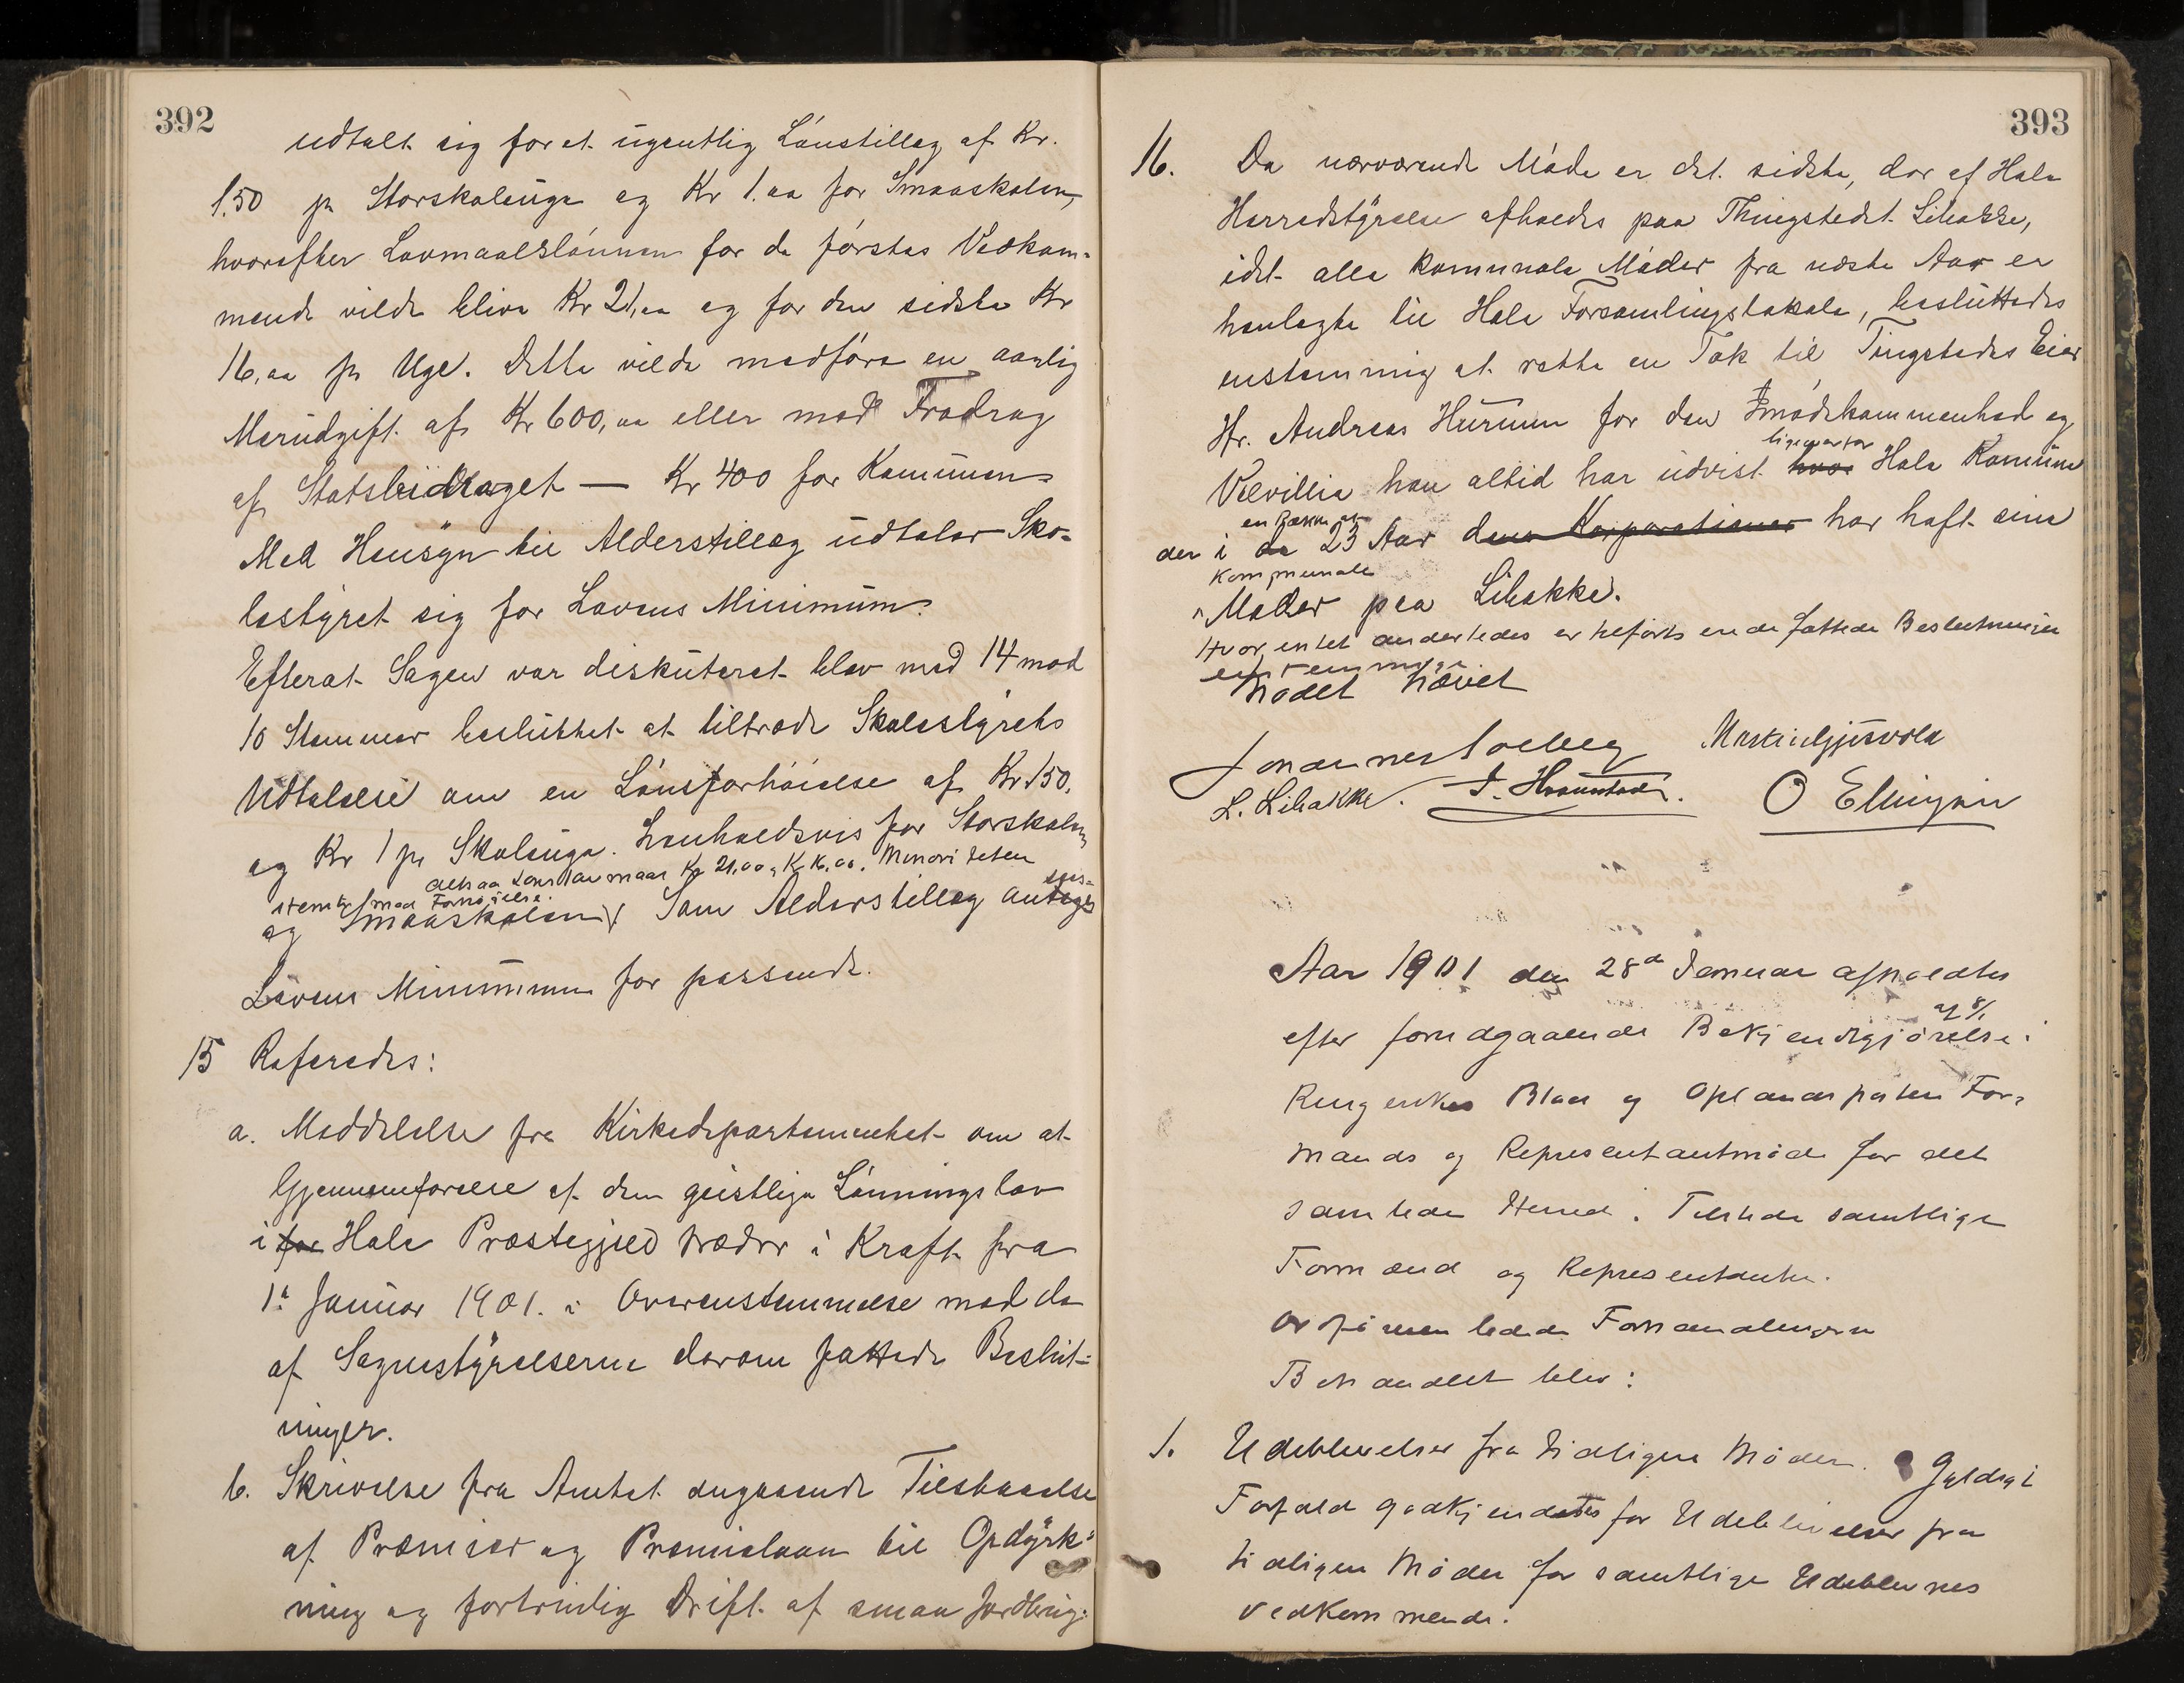 392
udtalt sig for et ugentlig Lønstillæg af Kr.
1.50 pr Storskoleuge og Kr 1.00 for Smaaskolen,
hvorefter Lovmaalslønnen for de førstes Vedkom-
mende vilde blive Kr 21,00 og for den sidste Kr
16,00 pr Uge. Dette vilde medføre en aarlig
Merudgift af Kr 600,00 eller med Fradrag
af Statsbidraget — Kr 400 for Kommunen
Med Hensyn til Alderstillæg udtaler Sko-
lestyret sig for Lovens Minimum.
Efterat Sagen var diskuteret blev med 14 mod
10 Stemmer besluttet at tiltræde Skolestyrets
Udtalelse om en Lønsforhøielse af Kr 1.50.
og Kr 1 pr Skoleuge. henholdsvis for Storskolen
altsaa Kr 21,00 og Kr 16,00. Minoriteten
stemte mod Forhøielse.
og Smaaskolen. Som Alderstillæg ansees
Lovens Minimum for passende.
15 Referedes:
a. Meddelelse fra Kirkedepartementet om at
Gjennemførelse af den geistlige Lønningslov
i for Hole Præstegjeld træder i Kraft fra
1ste Januar 1901. i Overenstemmelse med de
af Sognestyrelserne derom fattede Beslut-
ninger.
b. Skrivelse fra Amtet angaaende Tilstaaelse
af Præmier og Præmielaan til Opdyrk-
ning og fortrinlig Drift af smaa Jordbrug.
393
16. Da nærværende Møde er det sidste, der af Hole
Herredstyrelse afholdes paa Thingstedet Libakke,
idet alle kommunale Møder fra næste Aar er
henlagte til Hole Forsamlingslokale, besluttedes
enstemmig at rette en Tak til Tingstedes Eier
Hr. Andreas Hurum for den Imødekommenhed og
ligeoverfor
Velvillie han altid har udvist hvor Hole Kommune
en Række af
der i de 23 Aar denne Korporationer har haft sine
kommunale
Møder paa Libakke.
Hvor intet anderledes er tilført er de fattede Beslutninger
enstemmige
Mødet hævet
Johannes Solberg Martin Gjesvold
L. Libakke. O Ellingsen
Aar 1901 den 28de Januar afholdtes
af 8/1
efter forudgaaende Bekjendtgjørelse i
Ringerikes Blad og Oplandsposten For-
mands og Representantmøde for det
samlede Herred. Tilstede samtlige
Formænd og Representanter.
Ordføreren ledede Forhandlingerne
Behandlet blev:
1. Udeblivelser fra tidligere Møder. Gyldigt
Forfald godkjendtes for Udeblivelser fra
tidligere Møder for samtlige Udeblevnes
vedkommende.